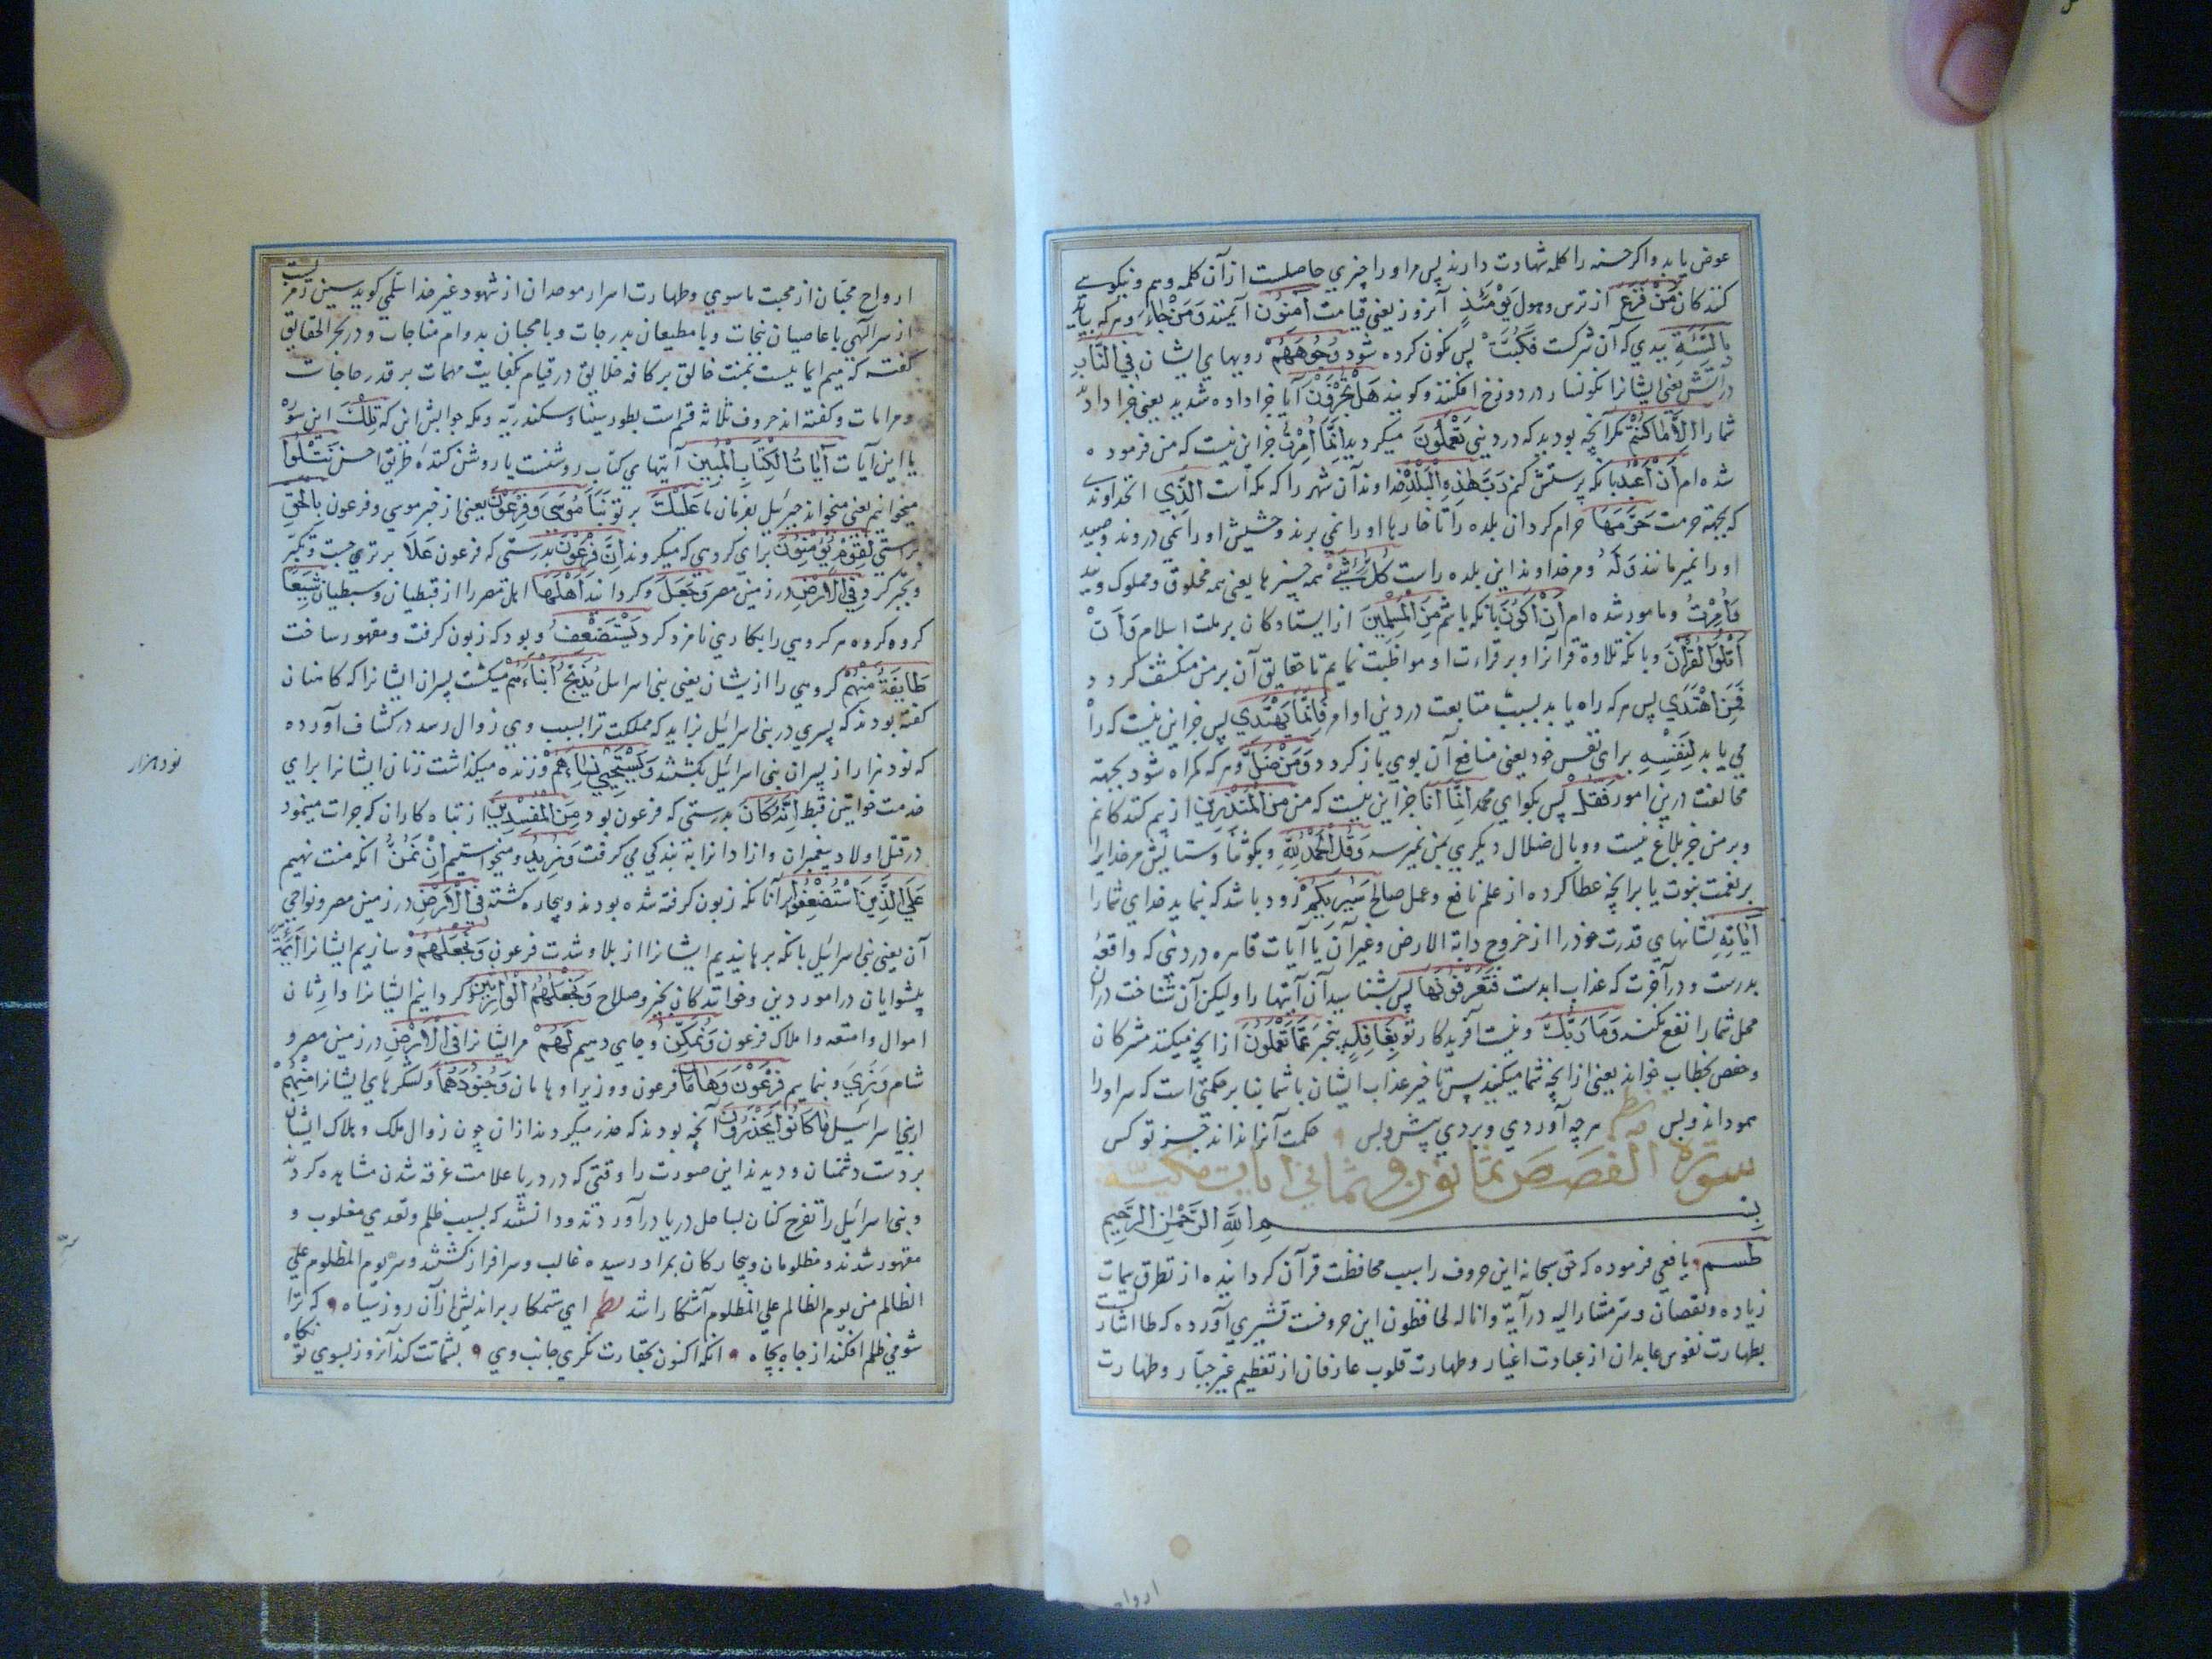 عوض یابد و اکر حسنه را کلمه شهادت دارند پس مر او را چیزي حاصلست از آن کلمه
کنندکان مِنْ فَزَعٍ از ترس و هول یَوْمَئِذٍ آنروز یعنی قیامت اٰمِنُونَ ایمنند وَمَنْ جَاءَ و هرکه بیاید
بِالسَّیِّئَةِ ببدي که آن شرکست فَکُبَّتْ پس نکون کرده شود وُجُوهُهُمْ رویهاي ایشان فِي النَّارِ
در آتش یعنی ایشانرا نکونسار در دوزخ افکنند و کویند هَلْ تُجْزَوْنَ آیا جزا داده شدید یعنی جزا داده
شمارا اِلَّا مَا کُنْتُمْ مکر آنچه بودید که در دنیی تَعْمَلُونَ میکردید اِنَّمَا اُمِرْتُ جز این نیست که من فرموده
شده ام اَنْ اَعْبُدَ بانکه پرستش کنم رَبَّ هٰذِهِ الْبَلْدَةِ خداوند آن شهر را که مکه است الَّذِي انخداوندی
که بجهة حرمت حَرَّمَهَا حرام کردان بلده را تا خارها او را نمی برند و حشیش او را نمی دروند و صید
او را نمیرمانند وَلَهُ و مر خداوند این بلده راست کُلُّ شَیْءٍ همه چیزها یعنی همه مخلوق و مملوک ویند
وَاُمِرْتُ و مامور شده ام اَنْ اَکُونَ بانکه باشم مِنَ الْمُسْلِمِینَ از ایستادکان بر ملت اسلام وَاَنْ
اَتْلُوَا الْقُرْاٰنَ و بانکه تلاوة قرآنرا و بر قراءت او مواظبت نمایم تا حقایق آن بر من منکشف کردد
فَمَنِ اهْتَدَي پس هرکه راه یابد بسبب متابعت در دین اوامر فَاِنَّمَا یَهْتَدِي پس جز این نیست که راه
می یابد لِنَفْسِهِ براي نفس خود یعنی منافع آن بوي باز کردد وَمَنْ ضَلَّ و هرکه کمراه شود بجهة
مخالفت درین امور فَقُلْ پس بکو اي محمد اِنَّمَا اَنَا جز این نیست که من مِنَ الْمُنْذِرِینَ از بیم کنندکانم
و بر من جز بلاغ نیست و وبال ضلال دیکري بمن نمیرسد وَقُلِ الْحَمْدُ لِلّٰهِ و بکو ثنا و ستایش مر خدایرا
بر نعمت نبوت یا بر انچه عطا کرده از علم نافع و عمل صالح سَیُرِیکُمْ زود باشد که بنماید خداي شما را
اٰیَاتِهِ نشانهاي قدرت خود را از خروج دابة الارض و غیر آن یا آیات قاهره در دنیی که واقعۀ
بدرست و در آخرت که عذاب ابدست فَتَعْرِفُونَهَا پس بشناسید آن آیتها را ولیکن آن شناخت دران
محل شما را نفع نکند وَمَا رَبُّکَ و نیست آفریدکار تو بِغَافِلٍ بیخبر عَمَّا تَعْمَلُونَ از انچه میکنند مشرکان
و حفص بخطاب خواند یعنی از انچه شما میکنید پس تاخیر عذاب ایشان یا شما بنا بر حکمتی است که سر او را
همو داند و بس نظم هرچه آوردي و بردي پیش و پس حکمت آنرا نداند جز تو کس
سورة القصص ثمانون و ثماني ایات مکیّه
بِسْمِ اللّٰهِ الرَّحْمٰنِ الرَّحِیمِ
طٰسم یافعی فرموده که حق سبحانه این حروف را سبب محافظت قرآن کردانیده از تطرق سمات
زیاده و نقصان و سر مشار الیه در آیة و انا له لحافظون این حروفست قشیري آورده که طا اشارتست
بطهارت نفوس عابدان از عبادت اغیار و طهارت قلوب عارفان از تعظیم غیر جبّار و طهارت
ارواح
ارواح محبّان از محبت ماسوي و طهارت اسرار موحدان از شهود غیر خدا سلمی کوید سین رمزیست
از سر الٓهی با عاصیان بنجات و با مطیعان بدرجات و با محبان بدوام مناجات و در بحر الحقایق
کفته که میم ایماییست بمنت خالق بر کافه خلایق در قیام بکفایت مهمات بر قدر حاجات
و مرامات و کفته اند حروف ثلاثه قسم است بطور سینا و سکندریّه و مکه جوابش این که تِلْکَ این سوره
یا این آیات اٰیَاتُ الْکِتَابِ الْمُبِینِ آیتهاي کتاب روشنست یا روشن کننده طریق احسن نَتْلُوا
میخوانیم یعنی میخواند جبرئیل بفرمان ما عَلَیْکَ بر تو نَبَاَ مُوسٰی وَفِرْعَوْنَ یعنی از خبر موسی و فرعون بِالْحَقِّ
براستی لِقَوْمٍ یُؤْمِنُونَ براي کروهي که میکروند اِنَّ فِرْعَوْنَ بدرستی که فرعون عَلَا برتري جست و تکبّر
و تجبّر کرد فِي الْاَرْضِ در زمین مصر وَجَعَلَ و کردانید اَهْلَهَا اهل مصر را از قبطیان و سبطیان شِیَعًا
کروه کروه هر کروهي را بکاري نامزد کرد یَسْتَضْعِفُ و بود که زبون کرفت و مقهور ساخت
طَایِفَةً مِنْهُمْ کروهي را از یشان یعنی بنی اسرائیل یُذَبِّحُ اَبْنَاءَهُمْ میکشت پسران ایشانرا که کاهنان
کفته بودند که پسري در بنی اسرائیل بزاید که مملکت ترا بسبب وي زوال رسد در کشاف آورده
که نود هزار از پسران بنی اسرائیل بکشتند وَیَسْتَحْیِي نِسَاءَهُمْ و زنده میکذاشت زنان ایشانرا براي
نود هزار
خدمت خواتین قبط اِنَّهُ کَانَ بدرستی که فرعون بود مِنَ الْمُفْسِدِینَ از تباه کاران که جرات مینمود
در قتل اولاد پیغمبران و ازادانرا به بندکي می کرفت وَنُرِیدُ و میخواستیم اَنْ نَمُنَّ انکه منت نهیم
عَلَي الَّذِینَ اسْتُضْعِفُوا بر آنانکه زبون کرفته شده بودند و بیچاره کشته فِي الْاَرْضِ در زمین مصر و نواحي
آن یعنی بنی اسرائیل بانکه برهانیدیم ایشانرا از بلا و شدت فرعون وَنَجْعَلَهُمْ و سازیم ایشانرا اَئِمَّةً
پیشوایان در امور دین و خوانندکان بخیر و صلاح وَنَجْعَلَهُمُ الْوَارِثِینَ و کردانیم ایشانرا وارثان
اموال و امتعه و املاک فرعون وَنُمَکِّنَ و جاي دهیم لَهُمْ مر ایشانرا فِي الْاَرْضِ در زمین مصر و
شام وَنُرِيَ و بنماییم فِرْعَوْنَ وَهَامَانَ فرعون و وزیر او هامان وَجُنُودَهُمَا و لشکرهاي ایشانرا مِنْهُمْ
از بنی اسرائیل مَا کَانُوا یَحْذَرُونَ آنچه بودند که حذر میکردند ازان چون زوال ملک و هلاک ایشان
بر دست دشمنان و دیدند این صورت را وقتی که در دریا علامت غرقه شدن مشاهده کردند
و بنی اسرائیل را تفرح کنان بساحل دریا درآوردند و دانستند که بسبب ظلم و تعدي مغلوب و
مقهور شدند و مظلومان و بیچارکان بمراد رسیده غالب و سرافراز کشتند و سرّ یوم المظلوم علي
الظالم من یوم الظالم علي المظلوم آشکارا شد نظم اي ستمکار براندیش ازآن روز سیاه که ترا
شومی ظلم افکند از جاه بچاه انکه اکنون بحقارت نکري جانب وي بشماتت کند آنروز بسوي تو نکاه